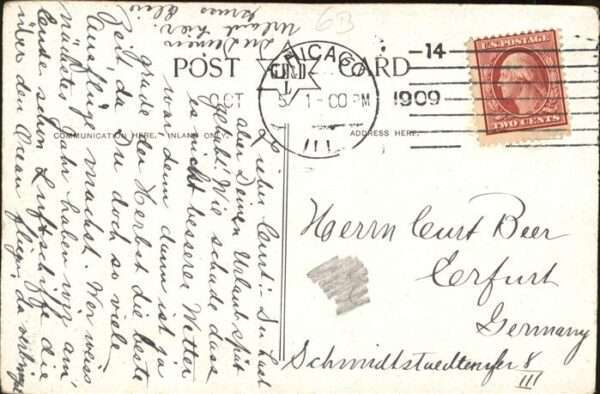 POST CARD
COMMUNICATION HERE.
ADDRESS HERE.
CHICAGO
ILL
OCT 5 1-00 PM
1909
14
U.S. POSTAGE
TWO CENTS
6B
Lieber Curt! Du hast
aber Deinen Urlaub spät
gehabt! Wie schade dass
es nicht besseres Wetter
war, denn dann ist ja
grade der Herbst die beste
Zeit, da Du doch so viele
Ausflüge machst. Wer weiss
nächstes Jahr haben wir am
Ende schon Luftschiffe die
über den Ocean fliegen, da
Du Deinen
Urlaub hier
Herrn Curt Beer
Erfurt
Germany
Schmidtstedterufer 8
III